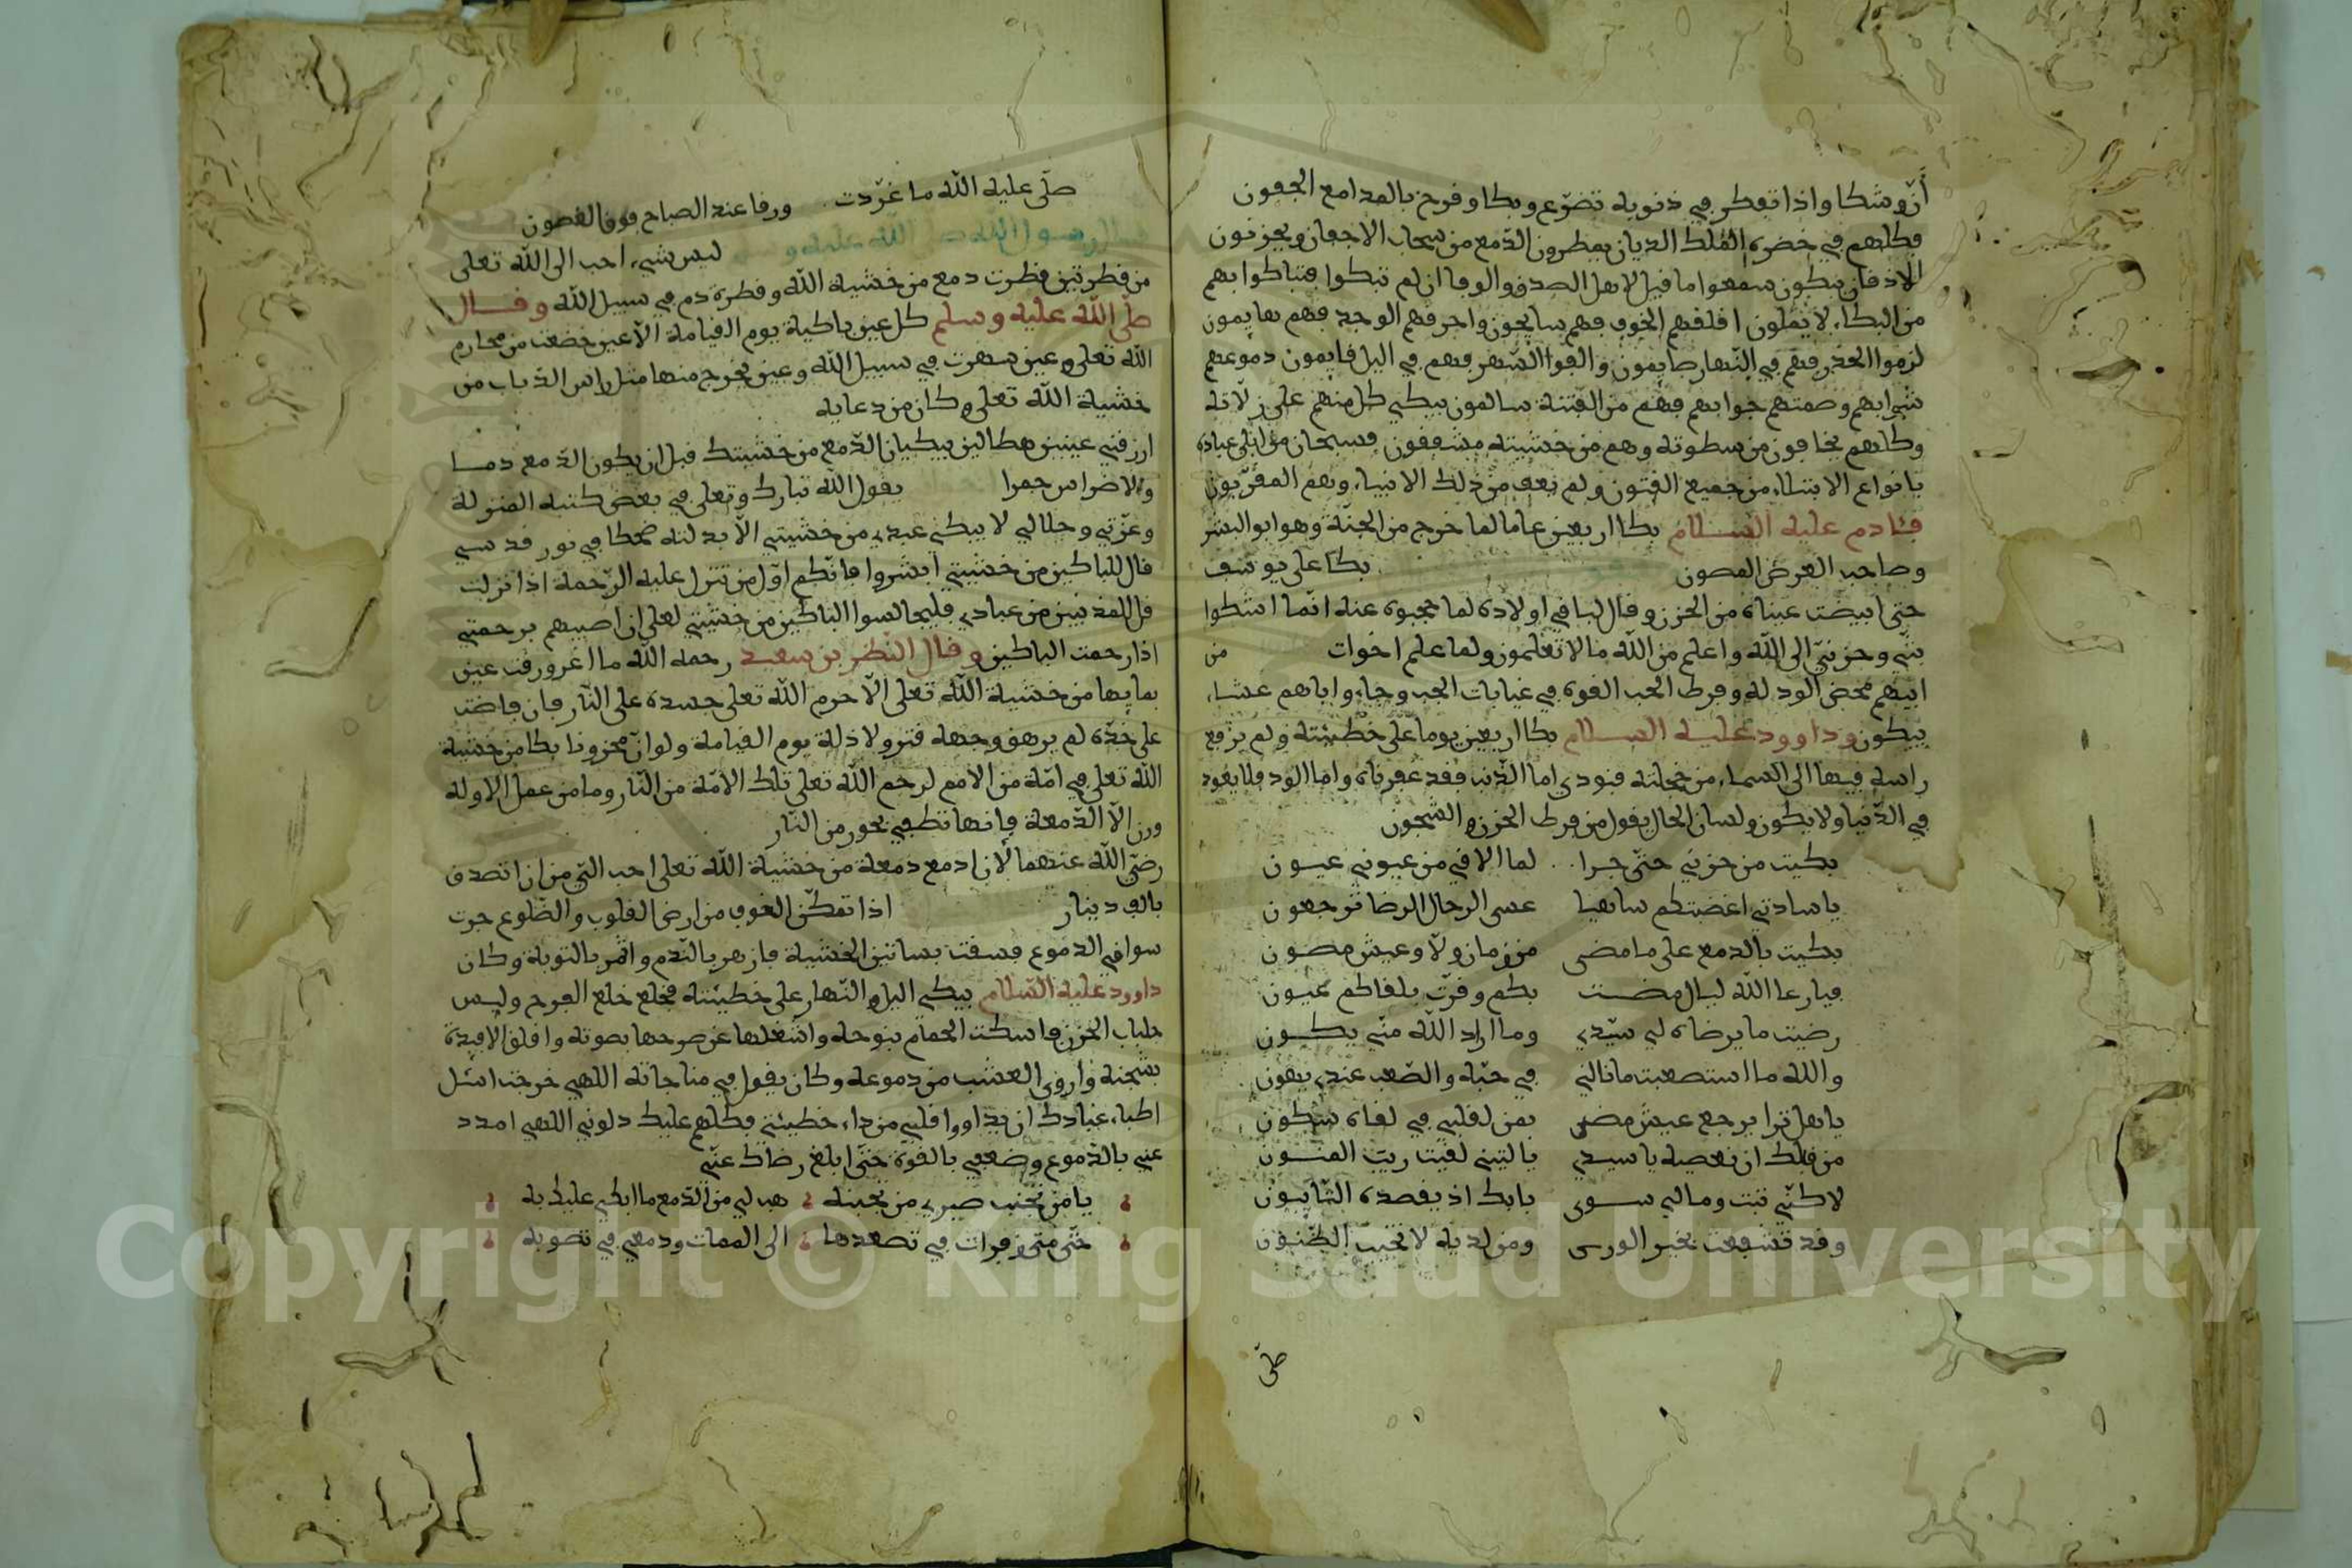 أنّ وشكا واذا تفكر في ذنوبه تضرّع وبكا وفرح بالمدامع الجفون
فكلهم في حضرة الملك الديان يمطرون الدّمع من سحاب الاجفان ويحزنون
للاذقان يبكون سمعوا ما قيل لاهل الصدق والوفا ان لم تبكوا فتباكوا فهم
من البكاء لا يملون اقلقهم الخوف فهم سايحون واحرقهم الوجد فهم هايمون
لزموا الحذر فهم في النّهار صايمون والفوا السّهر فهم في اليل قايمون دموعهم
شرابهم وصمتهم جوابهم فهم من الفتنة سالمون يبكي كل منهم على زلاته
وكلهم يخافون من سطوته وهم من خشيته مشفقون فسبحان من ابلى عباده
بانواع الابتلاء من جميع الفنون ولم يعف من ذلك الانبياء وهم المقرّبون
فـادم عليه السلام بكا اربعين عاما لما خرج من الجنّة وهو ابو البشر
وصاحب العرض المصون بكا على يوسف
حتى ابيضّت عيناه من الحزن وقال لباقي اولاده لما حجبوه عنه انما اشكوا
بثي وحزني الى الله واعلم من الله ما لا تعلمون ولما علم اخوات من
ابيهم محض الود له وفرط الحب القوه في غيابات الجب وجاءوا اباهم عشاء
يبكون وداوود عليه السلام بكا اربعين يوما على خطيئته ولم يرفع
راسه فيها الى السماء من خجلته فنودي اما الذنب فقد غفرناه واما الود فلا يعود
في الدّنيا ولا يكون ولسان الحال يقول من فرط الحزن والشجون
بكيت من حزني حتى جرا لما الاقي من عيوني عيون
يا سادتي اغضبتكم ساهيا عسى الرجال الرضا ترجعون
بكيت بالدمع على ما مضى من زمان ولّا وعيش مصون
فيا رعا الله ليال مضت بكم وقرّت بلقاكم عيون
رضيت ما يرضاه لي سيّدي وما اراد الله منّي يكون
والله ما استصعبت ما نالني في حبّه والصّعب عندي يهون
يا هل ترا يرجع عيش مضى بمن لقلبي في لقاه سكون
من قبلك ان نعصيه يا سيدي يا ليتني لقيت ريب المنون
لاكنّي تبت وما لي سوى بابك اذ يقصده التايبون
وقد تشفعت بخير الورى ومن لديه لا تخيب الظنون
صلى
صلى عليه الله ما غرّدت ورقا عند الصباح فوق الغصون
الرسول الله صلى الله عليه وسلم ليس شيء احب الى الله تعلى
من قطرتين قطرت دمع من خشية الله وقطرة دم في سبيل الله وقال
صلى الله عليه وسلم كل عين باكية يوم القيامة الا عين غضت من محارم
الله تعلى وعين سهرت في سبيل الله وعين يخرج منها مثل راس الذباب من
خشية الله تعلى وكان من دعايه
ارزقني عينين هطالين يبكيان الدّمع من خشيتك قبل ان يكون الدمع دمـا
والاضراس جمرا يقول الله تبارك وتعلى في بعض كتبه المنزلة
وعزّتي وجلالي لا يبكي عبدي من خشيتي الا بدلته ضحكا في نور قدسي
قال للباكين من خشيتي أبشروا فانكم اوّل من تنزل عليه الرّحمة اذا نزلت
قل للمذنبين من عبادي فليجالسوا الباكين من خشيتي لعلي ان اصيبهم برحمتي
اذا رحمت الباكين وقال النظر بن سعيد رحمه الله ما اغرورقت عين
بمايها من خشية الله تعلى الّا حرم الله تعلى جسده على النّار فان فاضت
على خدّه لم يرهق وجهه قتر ولا ذلة يوم القيامة ولو انّ محزونا بكا من خشية
الله تعلى في امّة من الامم لرحم الله تعلى تلك الامّة من النّار وما من عمل الا وله
وزن الّا الدّمعة فانها تطفي بحور من النّار
رضي الله عنهما لأن ادمع دمعة من خشية الله تعلى احب اليّ من ان اتصدق
بالف دينار اذا تمكّن الخوف من ارض القلوب والضّلوع جرت
سواقي الدموع فسقت بساتين الخشية فازهر بالنّدم واثمر بالتوبة وكان
داوود عليه السّلام يبكي اليل والنّهار على خطيئته فخلع خلع الفرح ولبس
جلباب الحزن فاسكت الحمام بنوحه واشغلها عن صرحها بصوته واقلق الافيدة
بشجنه واروى العشب من دموعه وكان يقول في مناجاته اللهي خرجت اسئل
اطباء عبادك ان يداووا قلبي من داء خطيئتي فكلهم عليك دلوني اللهي امدد
عيني بالدّموع وضعفي بالقوة حتى ابلغ رضاك عنّي
يا من تجنب صبري من تجنبه هب لي من الدّمع ما ابكي عليك به
حتّى متى زفرات في تصعدها الى الممات ودمعي في تصوبه
Copyright © King Saud University